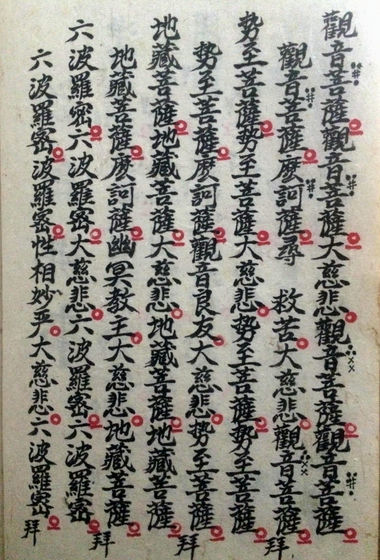 觀音菩薩觀音菩薩大慈悲觀音菩薩觀音菩薩
觀音菩薩摩訶薩尋 救苦大慈悲觀音菩薩
勢至菩薩勢至菩薩大慈悲勢至菩薩勢至菩薩
勢至菩薩摩訶薩觀音良友大慈悲勢至菩薩 拜
地藏菩薩地藏菩薩大慈悲地藏菩薩地藏菩薩
地藏菩薩摩訶薩幽冥教主大慈悲地藏菩薩 拜
六波羅密六波羅密大慈悲六波羅密六波羅密
六波羅密波羅密性相妙乎大慈悲六波羅密 拜